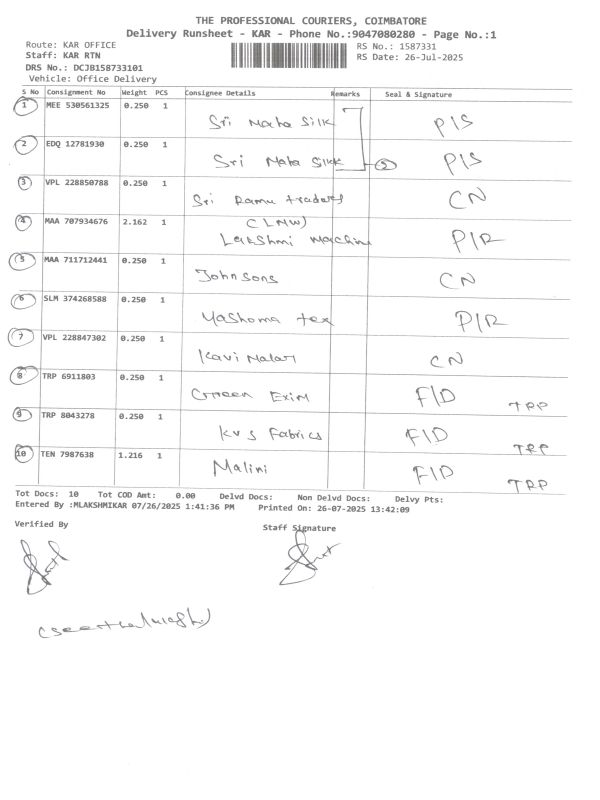 THE PROFESSIONAL COURIERS, COIMBATORE
Delivery Runsheet - KAR - Phone No.:9047080280 - Page No.:1
Route: KAR OFFICE RS No.: 1587331
Staff: KAR RTN RS Date: 26-Jul-2025
DRS No.: DCJB158733101
Vehicle: Office Delivery
S No Consignment No Weight PCS Consignee Details Remarks Seal & Signature
1 MEE 530561325 0.250 1 Sri Maha Silk P/S
2 EDQ 12781930 0.250 1 Sri Maha Silk 2 P/S
3 VPL 228850788 0.250 1 Sri Ramu traders CN
4 MAA 707934676 2.162 1 (LMW)
Lakshmi Machine P/R
5 MAA 711712441 0.250 1 Johnsons CN
6 SLM 374268588 0.250 1 Yashoma tex P/R
7 VPL 228847302 0.250 1 Kavi Malar CN
8 TRP 6911803 0.250 1 Green Exim F/D TRP
9 TRP 8043278 0.250 1 KVS Fabrics F/D TRP
10 TEN 7987638 1.216 1 Malini F/D TRP
Tot Docs: 10 Tot COD Amt: 0.00 Delvd Docs: Non Delvd Docs: Delvy Pts:
Entered By :MLAKSHMIKAR 07/26/2025 1:41:36 PM Printed On: 26-07-2025 13:42:09
Verified By Staff Signature